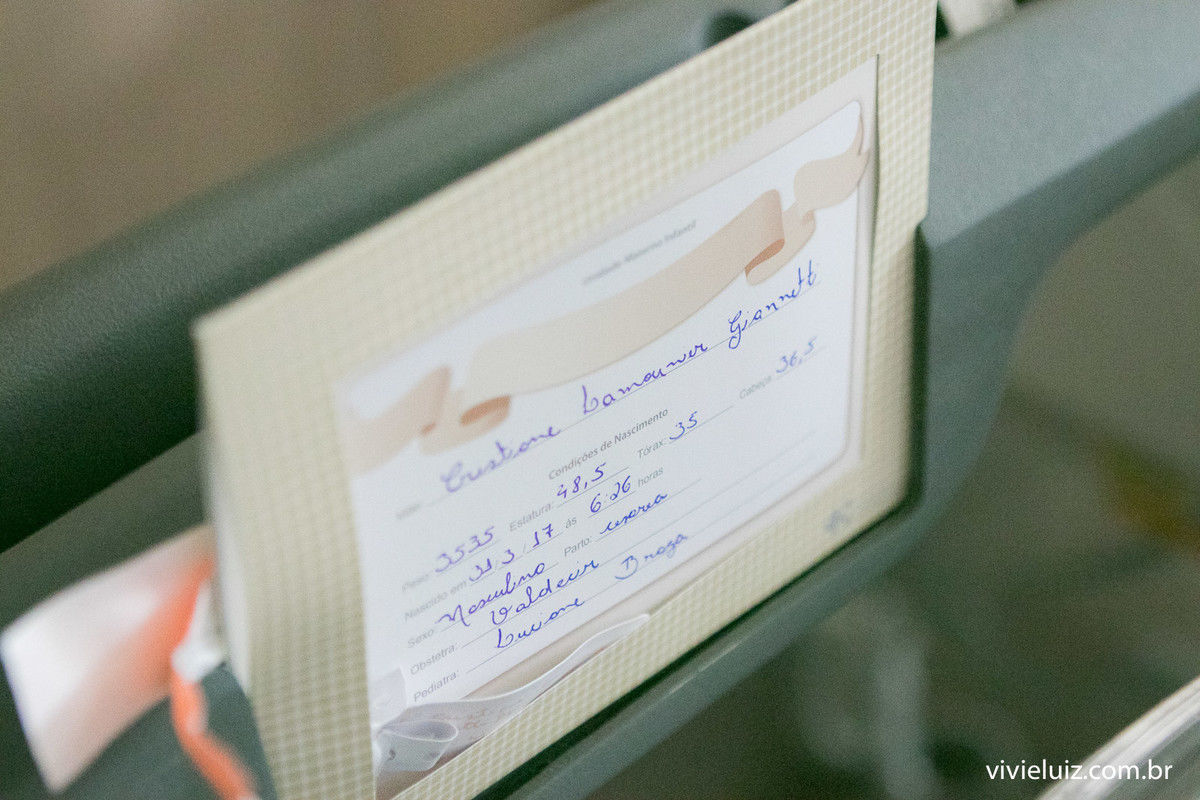 Unidade Materno Infantil
Mãe: Cristiane Lamounier Giannetti
Condições de Nascimento
Peso: 3535 Estatura: 48,5 Tórax: 35 Cabeça: 36,5
Nascido em 31/3/17 às 6:26 horas
Sexo: Masculino Parto: cesárea
Obstetra: Valdecir
Pediatra: Luciane Braga
vivieluiz.com.br